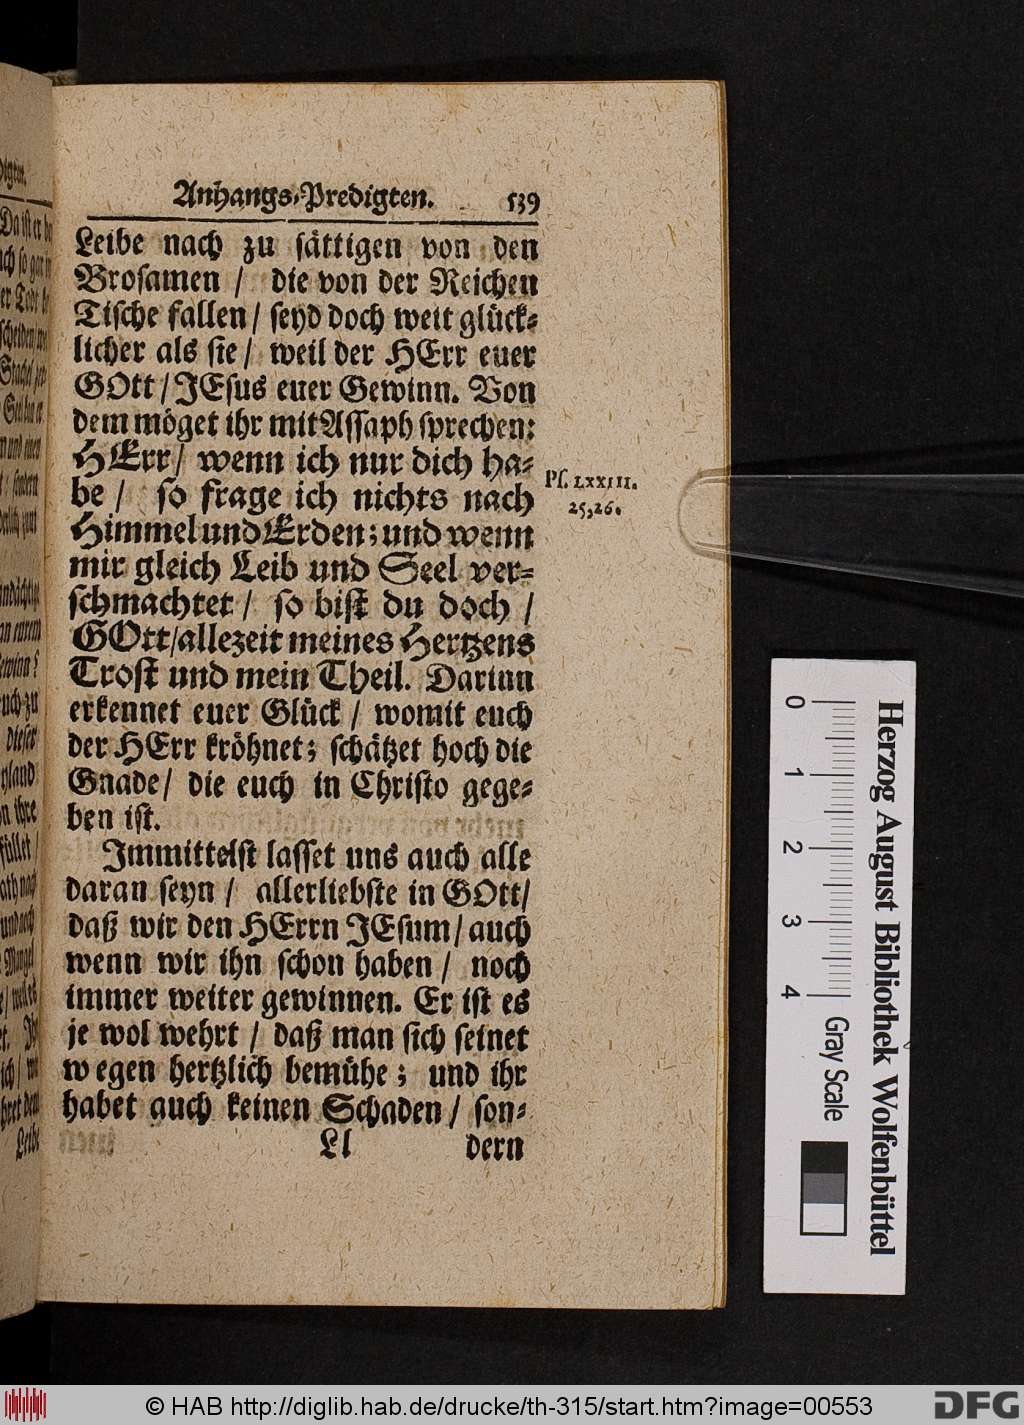 Anhangs-Predigten. 539
Leibe nach zu sättigen von den
Brosamen / die von der Reichen
Tische fallen / seyd doch weit glück-
licher als sie / weil der HErr euer
GOtt / JEsus euer Gewinn. Von
dem möget ihr mit Assaph sprechen:
HErr / wenn ich nur dich ha-
be / so frage ich nichts nach
Himmel und Erden; und wenn
mir gleich Leib und Seel ver-
schmachtet / so bist du doch /
GOtt / allezeit meines Hertzens
Trost und mein Theil. Darinn
erkennet euer Glück / womit euch
der HErr kröhnet; schätzet hoch die
Gnade / die euch in Christo gege-
ben ist.
Immittelst lasset uns auch alle
daran seyn / allerliebste in GOtt /
daß wir den HErrn JEsum / auch
wenn wir ihn schon haben / noch
immer weiter gewinnen. Er ist es
je wol wehrt / daß man sich seinet
wegen hertzlich bemühe; und ihr
habet auch keinen Schaden / son-
Ll dern
Ps. LXXIII.
25,26.
Herzog August Bibliothek Wolfenbüttel
0 1 2 3 4 Gray Scale
© HAB http://diglib.hab.de/drucke/th-315/start.htm?image=00553
DFG